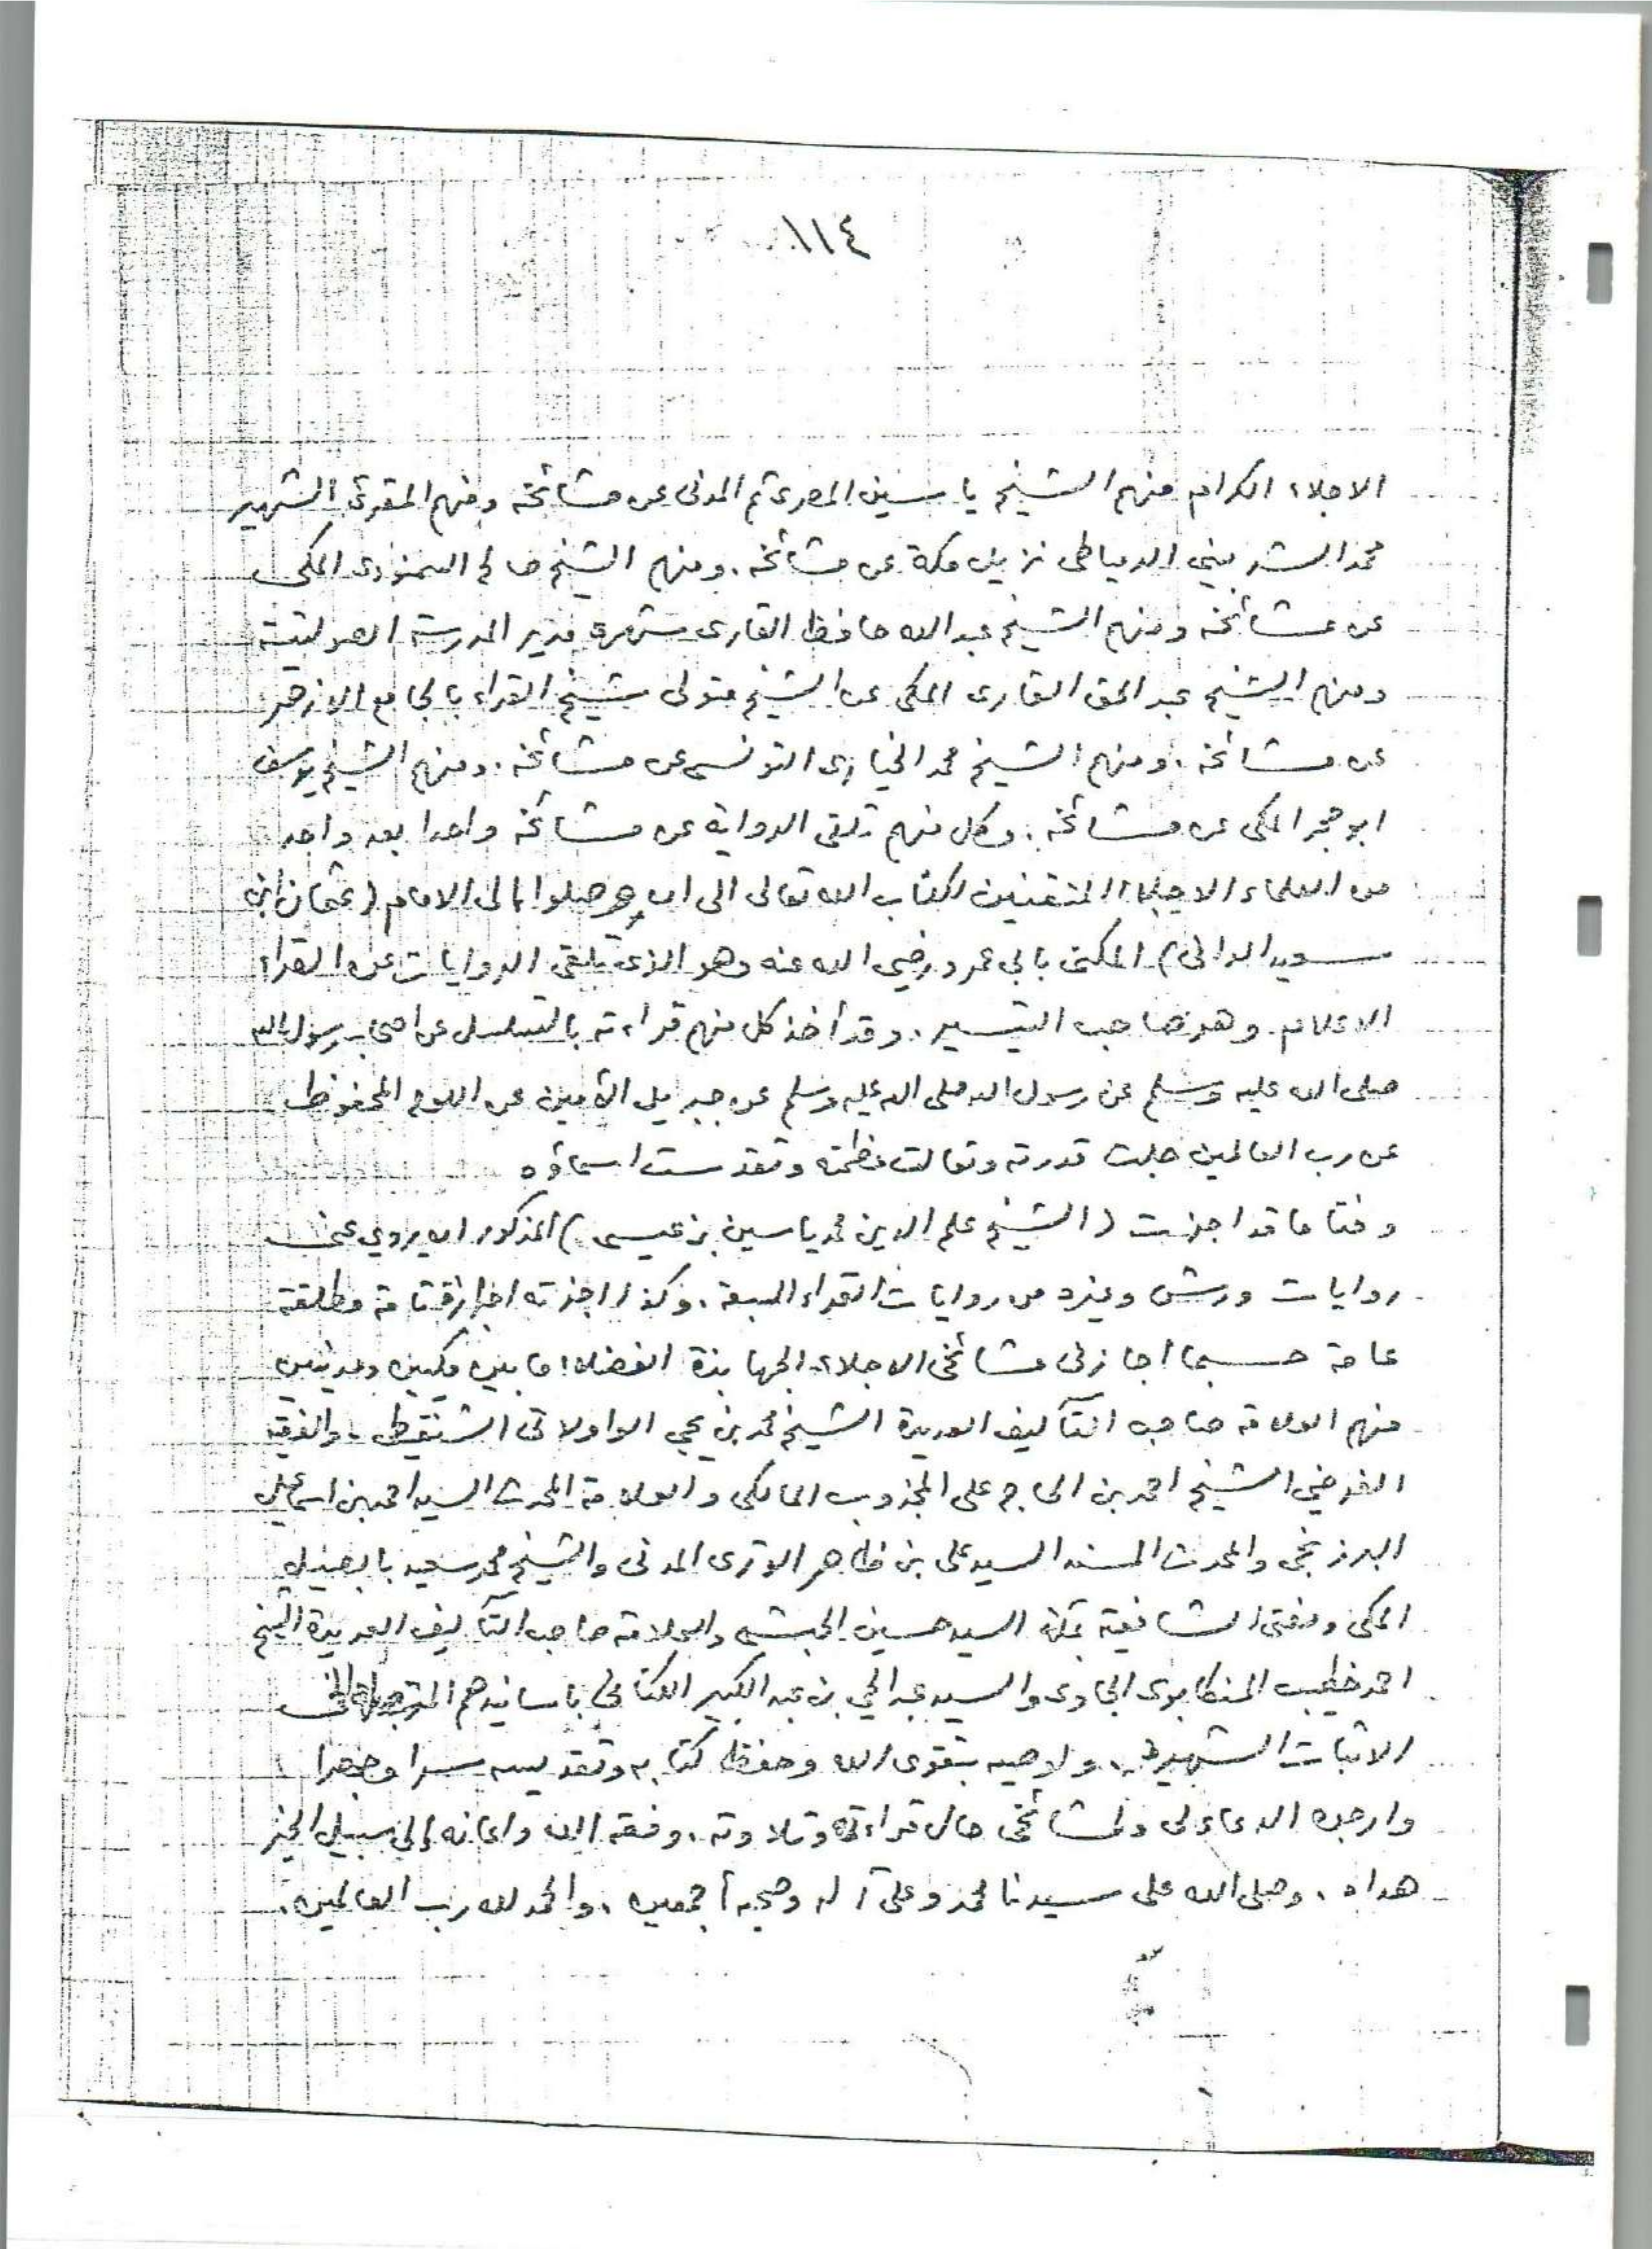 ١١٤
الاجلاء الكرام منهم الشيخ ياسين المصرى ثم المدنى عن مشائخه ومنهم المقرئ الشهير
محمد الشربيني الدمياطى نزيل مكة عن مشائخه. ومنهم الشيخ صالح السمنودى المكى
عن مشائخه ومنهم الشيخ عبد الله حافظ القارى مدير المدرسة الصولتية
ومنهم الشيخ عبد الحق القارى المكى عن الشيخ متولى شيخ القراء بالجامع الازهر
عن مشائخه. ومنهم الشيخ محمد الخيارى التونسى عن مشائخه. ومنهم الشيخ يوسف
ابو حجر المكى عن مشائخه. وكل منهم تلقى الرواية عن مشائخه واحدا بعد واحد
من العلماء الاجلاء المتقنين لكتاب الله تعالى الى ان وصلوا الى الامام (عثمان ابن
سعيد الدانى) المكنى بابى عمرو رضي الله عنه وهو الذى تلقى الروايات عن القراء
الاعلام وهو صاحب التيسير. وقد أخذ كل منهم قراءته بالتسلسل عن اصحاب رسول الله
صلى الله عليه وسلم عن رسول الله صلى الله عليه وسلم عن جبريل الأمين عن اللوح المحفوظ
عن رب العالمين جلت قدرته وتعالت عظمته وتقدست اسماؤه
وختاما قد اجزت (الشيخ علم الدين محمد ياسين بن عيسى) المذكور ان يروي عنى
روايات ورش وغيره من روايات القراء السبعة. وكذا اجزته اجازة تامة مطلقة
عامة حسبما اجازنى مشائخى الاجلاء الجهابذة الفضلاء ما بين مكيين ومدنيين
منهم العلامة صاحب التآليف العديدة الشيخ محمد بن يحيى الولاتى الشنقيطى. والفقيه
الفرضي الشيخ احمد بن الحاج على المجذوب المالكى والعلامة المحدث السيد احمد بن اسماعيل
البرزنجى والمحدث المسند السيد على بن ظاهر الوترى المدنى والشيخ محمد سعيد بابصيل
المكى ومفتى الشافعية بمكة السيد حسين الحبشى والعلامة صاحب التآليف العديدة الشيخ
احمد خطيب المنكابوى الجاوى والسيد عبد الحي بن عبد الكبير الكتانى باسانيدهم
الاثبات الشهيرة. واوصيه بتقوى الله وحفظ كتابه وتقديسه سرا وجهرا
وارجوه الدعاء لى ولمشائخى حال قراءته وتلاوته. وفقه الله واعانه والى سبيل الخير
هداه. وصلى الله على سيدنا محمد وعلى آله وصحبه أجمعين. والحمد لله رب العالمين.